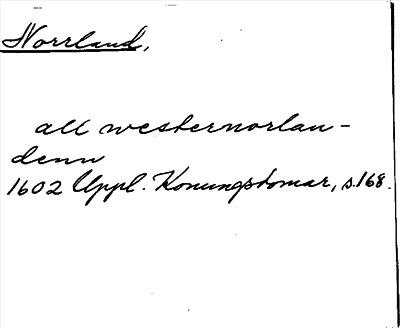 Norrland,
all westernorlan-
denn
1602 Uppl. Konungsdomar, s.168.